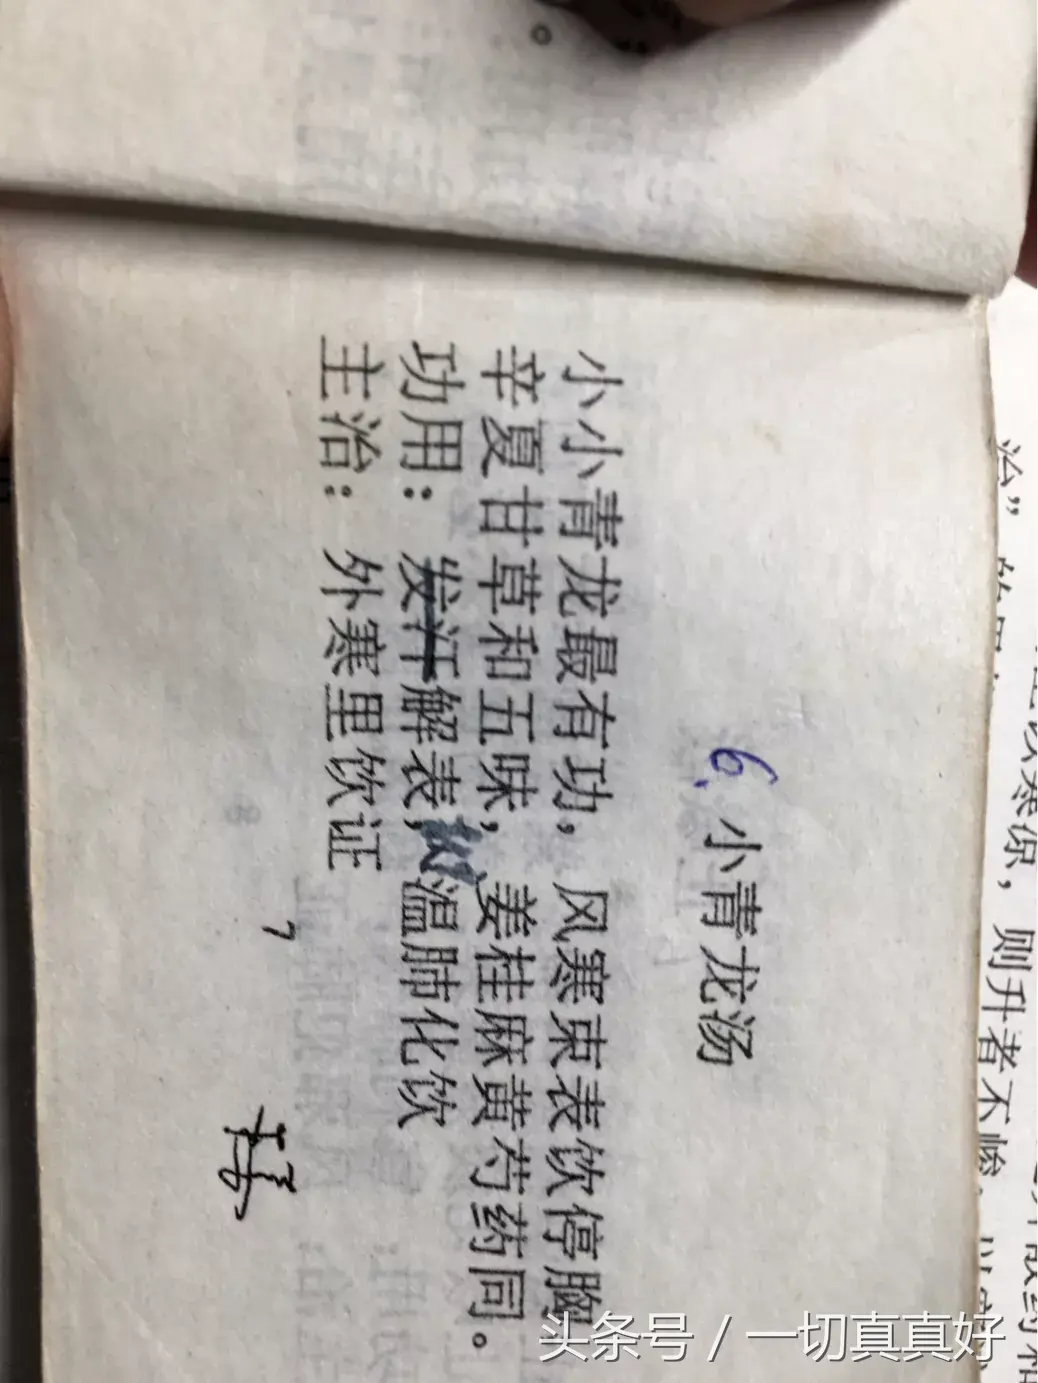 6. 小青龙汤
小小青龙最有功，风寒束表饮停胸，
辛夏甘草和五味，姜桂麻黄芍药同。
功用：发汗解表，温肺化饮
主治：外寒里饮证
7
治”
寒凉，则升者不峻
头条号 / 一切真真好